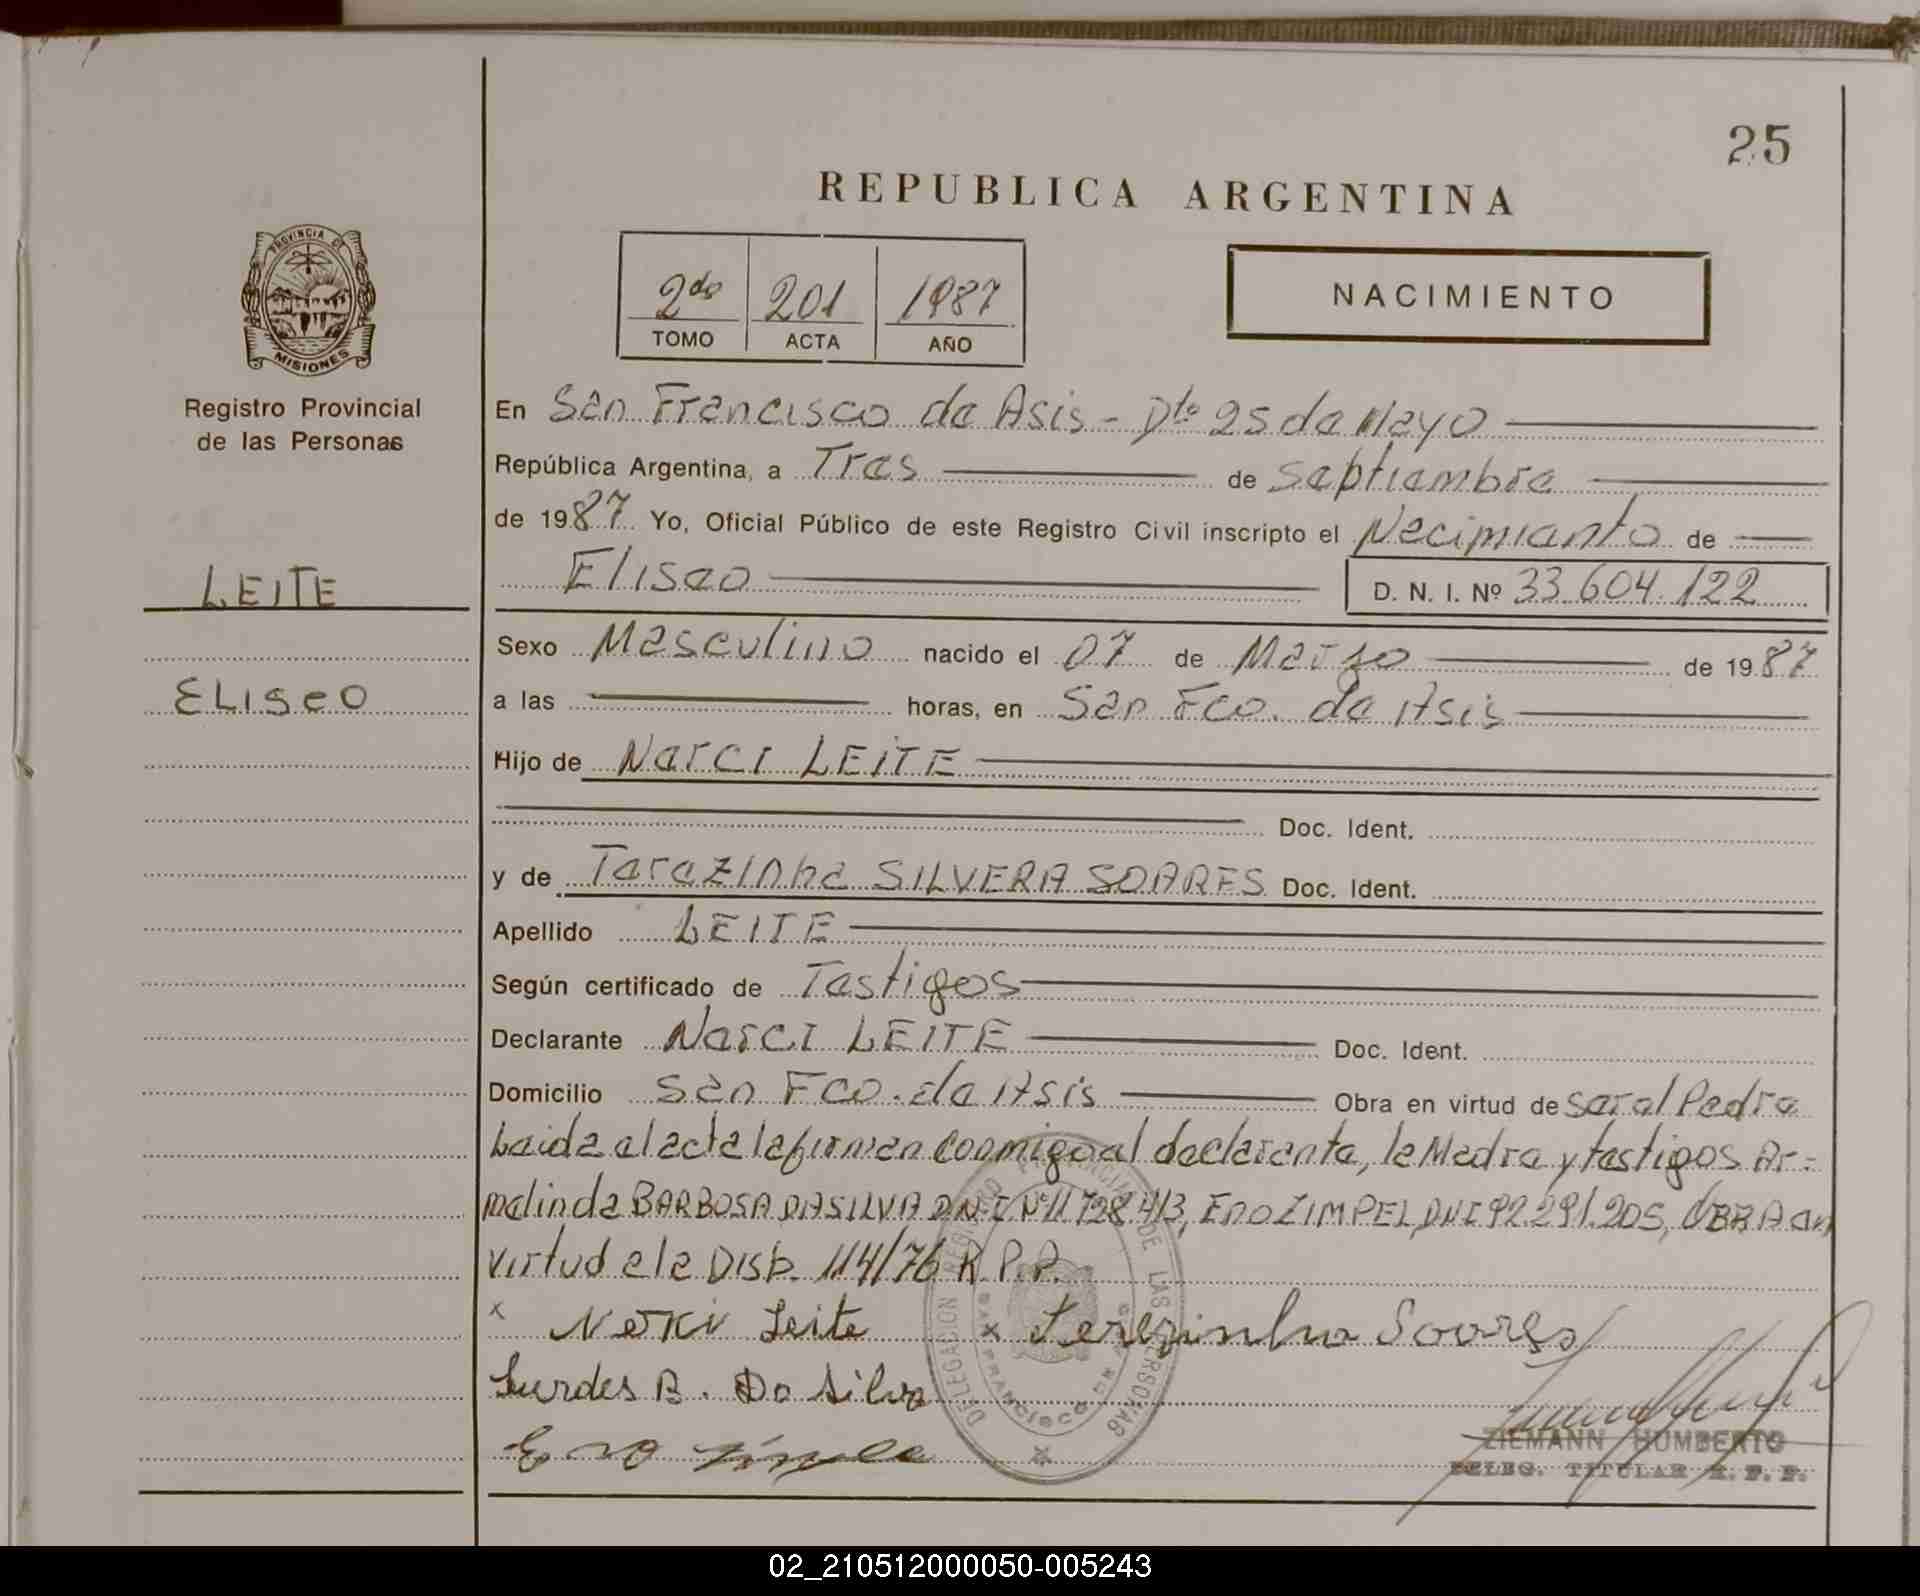 25
REPUBLICA ARGENTINA
PROVINCIA DE
MISIONES
Registro Provincial
de las Personas
2do 201 1987
TOMO ACTA AÑO
NACIMIENTO
En San Francisco de Asis - Dto 25 de Mayo
República Argentina, a Tres de Septiembre
de 1987 Yo, Oficial Público de este Registro Civil inscripto el Nacimiento de
Eliseo D. N. I. Nº 33.604.122
LEITE
ELISEO
Sexo Masculino nacido el 07 de Marzo de 1987
a las horas, en San Fco. de Asis
Hijo de Narci LEITE
Doc. Ident.
y de Terezinha SILVERA SOARES Doc. Ident.
Apellido LEITE
Según certificado de Testigos
Declarante Narci LEITE Doc. Ident.
Domicilio San Fco. de Asis Obra en virtud de ser el Padre
Leida el acta la firman conmigo el declarante, la Madre y testigos Ar-
melinda BARBOSA DA SILVA D.N.I. Nº 11.728.413, Eno ZIMPEL, DNI 92.291.205, OBRA en
virtud a la Disp. 114/76 R.P.P.
x Nerci Leite x Terezinha Soares
Lurdes B. Da Silva
DELEGACION REGISTRO PROVINCIAL DE LAS PERSONAS
ZIEMANN HUMBERTO
DELEG. TITULAR R. P. P.
02_210512000050-005243